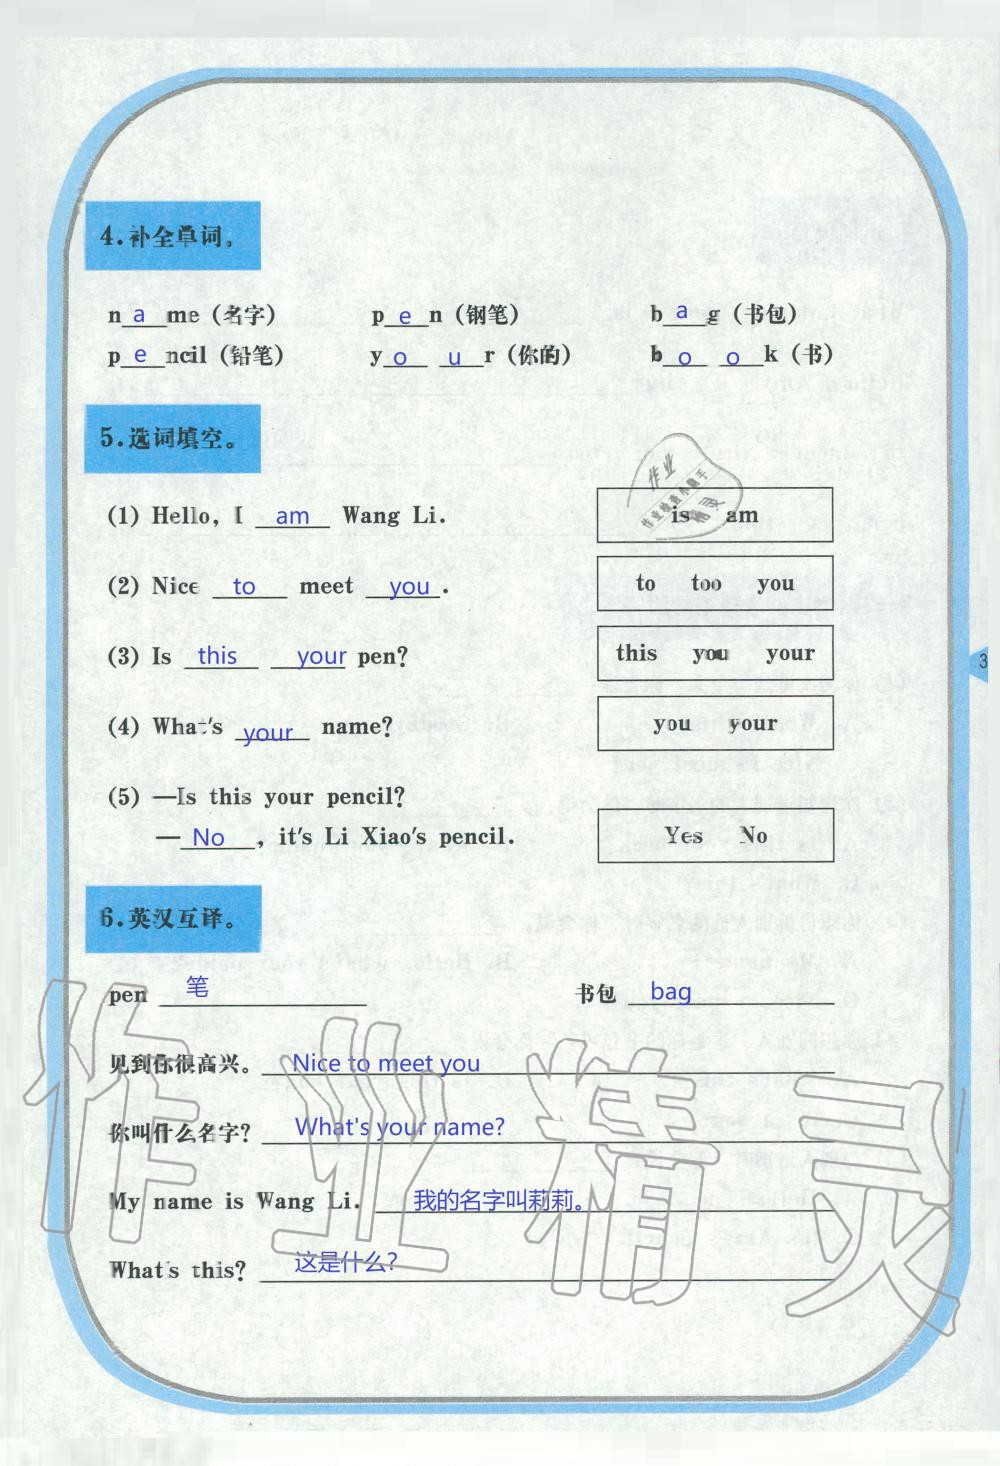 4.补全单词。
n a me（名字） p e n（钢笔） b a g（书包）
p e ncil（铅笔） y o u r（你的） b o o k（书）
5.选词填空。
(1) Hello, I am Wang Li. is am
(2) Nice to meet you. to too you
(3) Is this your pen? this you your
(4) What's your name? you your
(5) —Is this your pencil?
—No, it's Li Xiao's pencil. Yes No
作业
作业检查小助手
精灵
3
6.英汉互译。
pen 笔 书包 bag
见到你很高兴。 Nice to meet you
你叫什么名字? What's your name?
My name is Wang Li. 我的名字叫莉莉。
What's this? 这是什么?
作业精灵